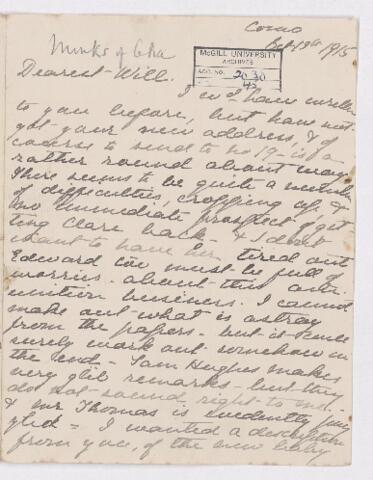 Como
Oct 13th 1915
McGILL UNIVERSITY
ARCHIVES
ACC. NO. 2030
Dearest Will.
I w<sup>d</sup> have written
to you before, but have not
got your new address, & of
course to send to no 19 - is a
rather round about way.
There seems to be quite a number
of difficulties, cropping up, &
no immediate prospect of get-
ting Clare back - & I don't
want to have her tired out
Edward too must be full of
worries about this am-
unition business. I cannot
make out what is astray
from the papers - but it will
surely work out somehow in
the end - Sam Hughes makes
very glib remarks - but they
do not sound right to me.
& Mr Thomas is evidently
glib = I wanted a description
from you, of the new baby